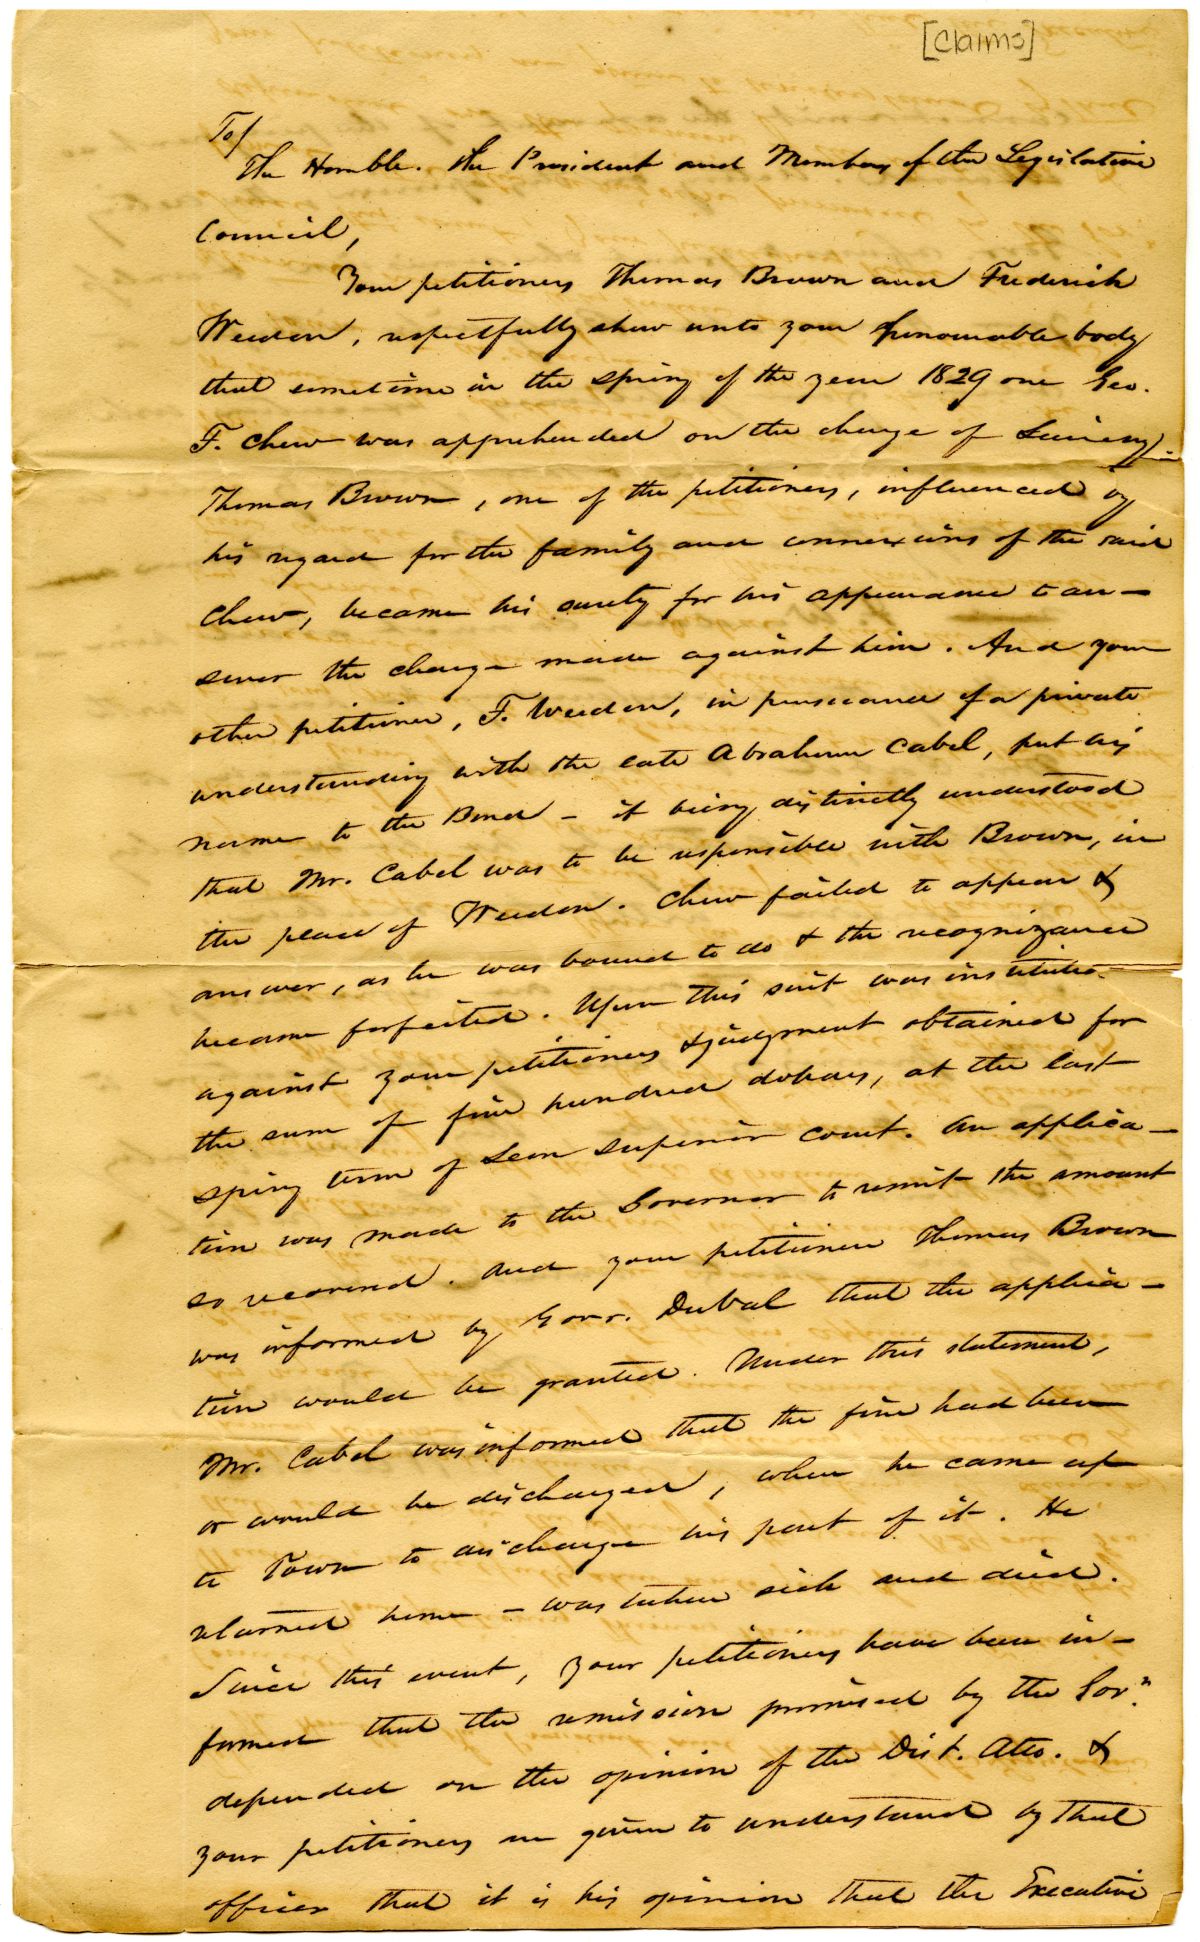 [Claims]
To/
The Honble. the President and Members of the Legislative
Council,
Your petitioners Thomas Brown and Frederick
Weedon, respectfully shew unto your honourable body
that sometime in the spring of the year 1829 one Geo.
F. Chew was apprehended on the charge of Larceny.
Thomas Brown, one of the petitioners, influenced by
his regard for the family and connexions of the said
Chew, became his surety for his appearance to an-
swer the charge made against him. And your
other petitioner, F. Weedon, in pursuance of a private
understanding with the late Abraham Cabel, put his
name to the Bond - it being distinctly understood
that Mr. Cabel was to be responsible with Brown, in
the place of Weedon. Chew failed to appear &
answer, as he was bound to do & the recognizance
became forfeited. Upon this suit was instituted
against your petitioners & judgment obtained for
the sum of five hundred dollars, at the last
spring term of Leon superior court. An applica-
tion was made to the Governor to remit the amount
so recovered. And your petitioner Thomas Brown
was informed by Govr. Duval that the applica-
tion would be granted. Under this statement,
Mr. Cabel was informed that the fine had been
or would be discharged, when he came up
to Town to discharge his part of it. He
returned home - was taken sick and died.
Since this event, your petitioners have been in-
formed that the remission promised by the Govr.
depended on the opinion of the Dist. Atto. &
your petitioners are given to understand by that
officer that it is his opinion that the Executive